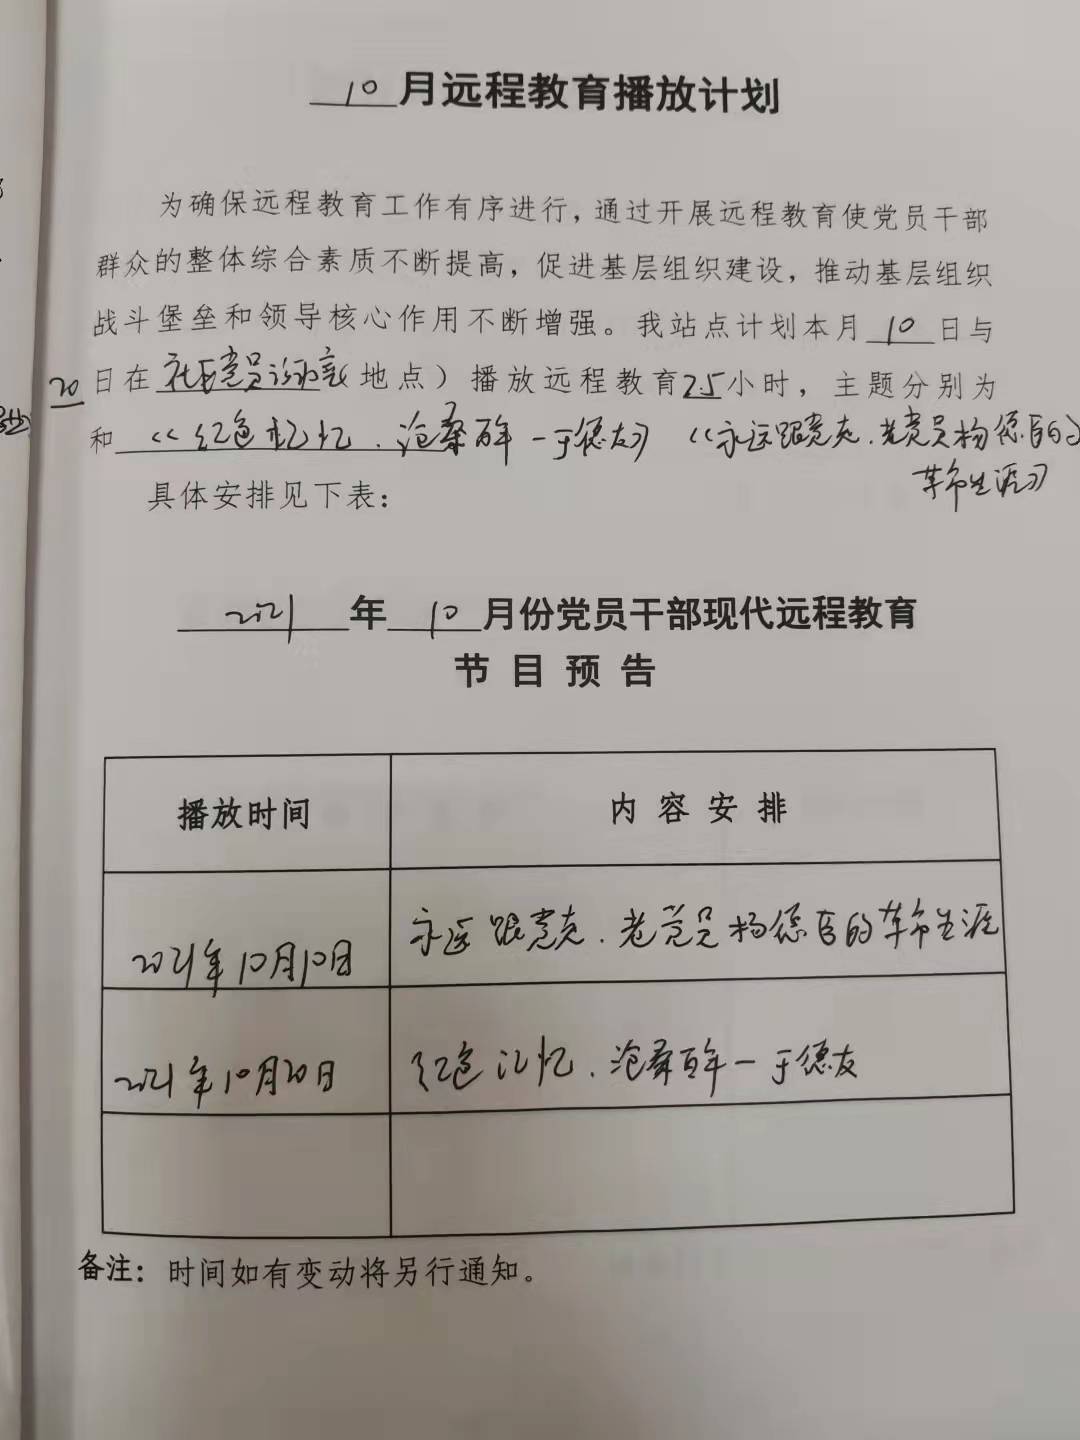 10月远程教育播放计划
为确保远程教育工作有序进行，通过开展远程教育使党员干部
群众的整体综合素质不断提高，促进基层组织建设，推动基层组织
战斗堡垒和领导核心作用不断增强。我站点计划本月10日与
20日在社区党员活动室（地点）播放远程教育2.5小时，主题分别为
和《红色记忆.沧桑百年一于德友》《永远跟党走.老党员杨德臣的
革命生涯》
具体安排见下表：
2021年10月份党员干部现代远程教育
节目预告
播放时间 内容安排
2021年10月10日 永远跟党走.老党员杨德臣的革命生涯
2021年10月20日 红色记忆.沧桑百年一于德友
备注：时间如有变动将另行通知。